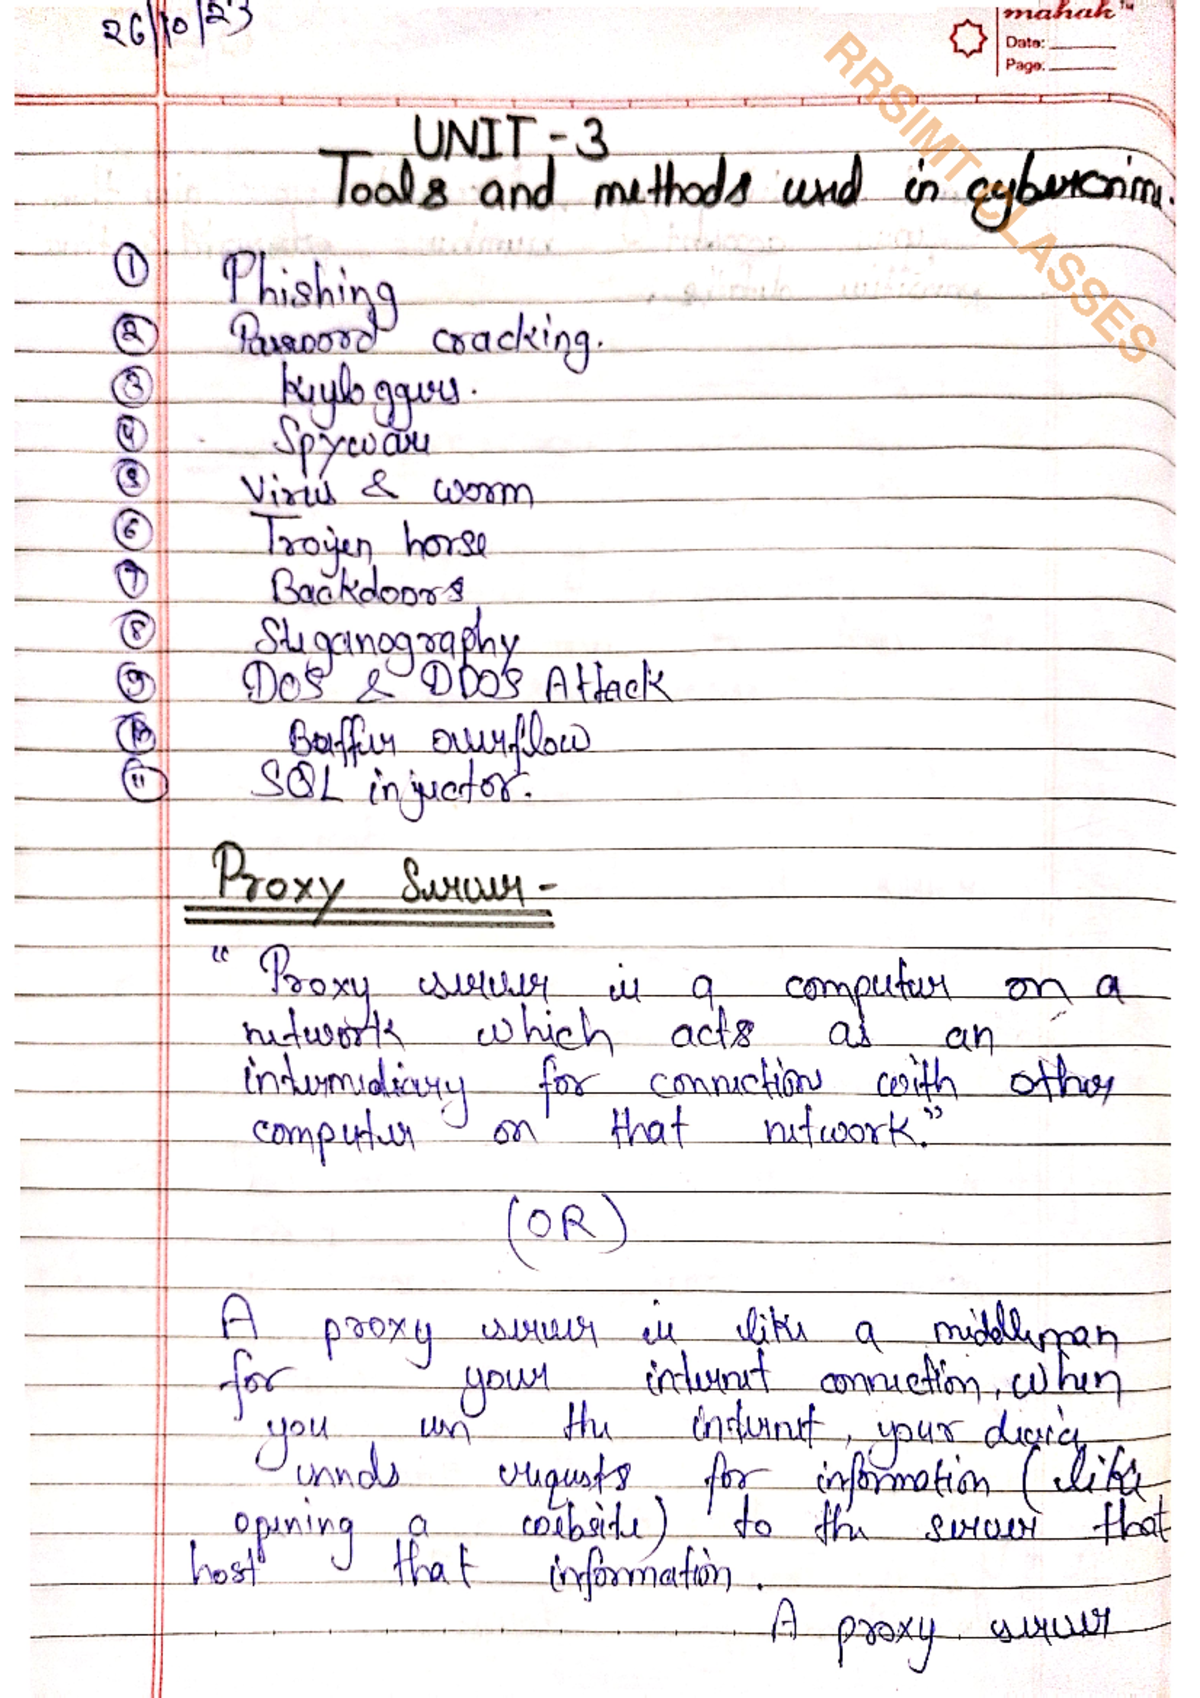 26/10/23
mahak™
Date:
Page:
RRSIMT CLASSES
UNIT - 3
Tools and methods used in cybercrime.
① Phishing
② Password cracking.
③ Keyloggers.
④ Spyware
⑤ Virus & worm
⑥ Trojen horse
⑦ Backdoors
⑧ Steganography
⑨ DOS & DDOS Attack
⑩ Buffer overflow
⑪ SQL injector.
Proxy Server -
" Proxy server is a computer on a
network which acts as an
intermediary for connection with other
computer on that network."
(OR)
A proxy server is like a middleman
for your internet connection, when
you use the internet, your device
sends requests for information (like
opening a website) to the server that
host that information.
A proxy server